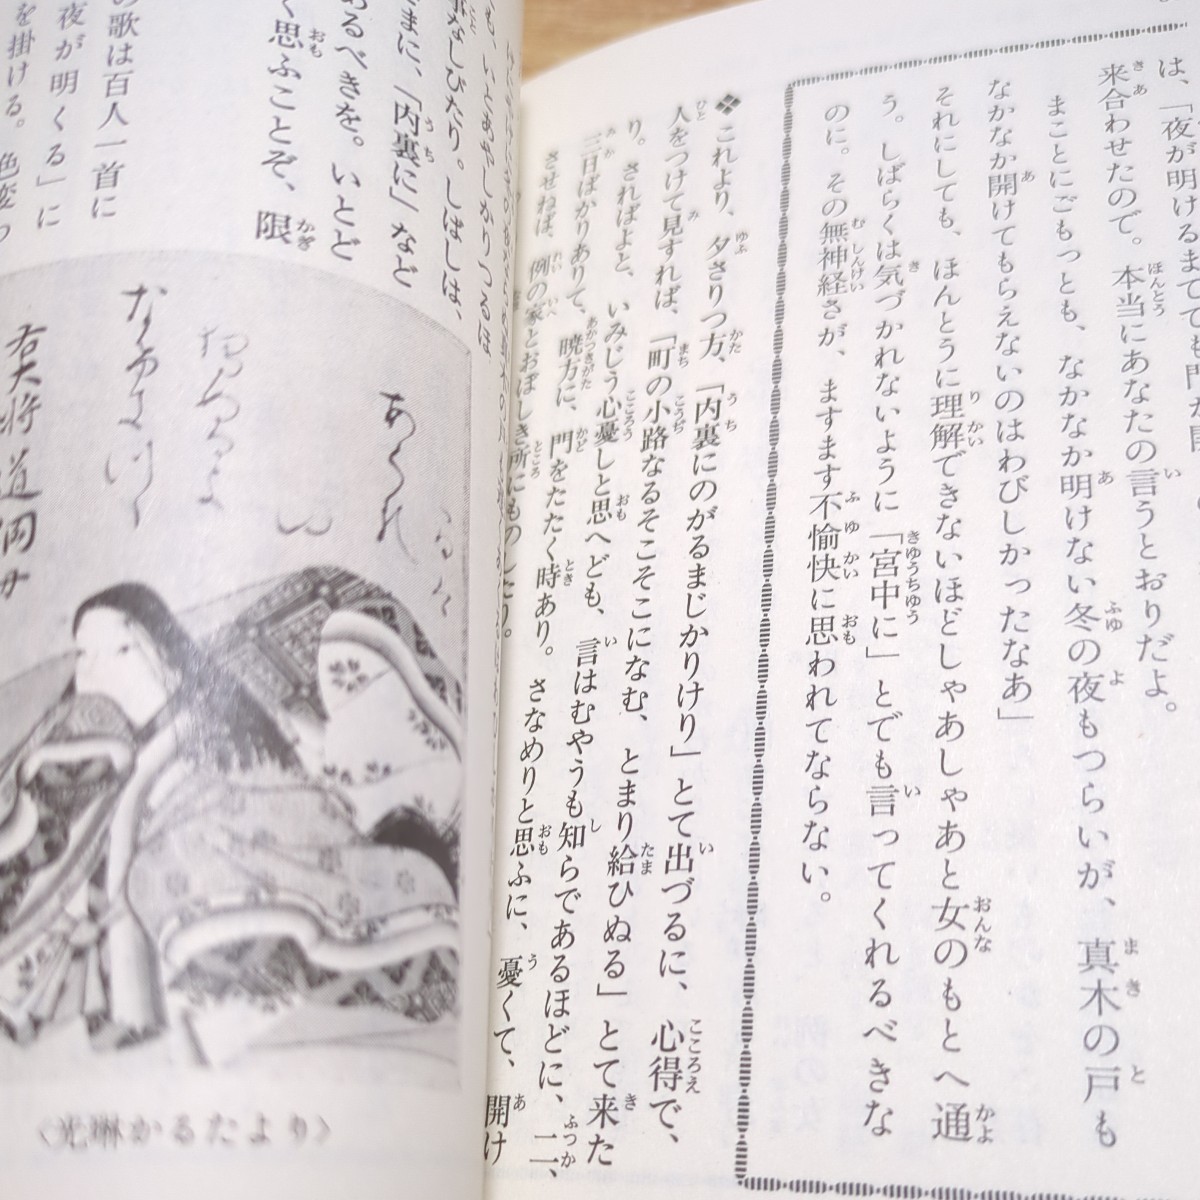 は、「夜が明けるまでても門が開
来合わせたので。本当にあなたの言うとおりだよ。
まことにごもっとも、なかなか明けない冬の夜もつらいが、真木の戸も
なかなか開けてもらえないのはわびしかったなあ」
それにしても、ほんとうに理解できないほどしゃあしゃあと女のもとへ通
う。しばらくは気づかれないように「宮中に」とでも言ってくれるべきな
のに。その無神経さが、ますます不愉快に思われてならない。
❖これより、夕さりつ方、「内裏にのがるまじかりけり」とて出づるに、心得で、
人をつけて見すれば、「町の小路なるそこそこになむ、とまり給ひぬる」とて来た
り。さればよと、いみじう心憂しと思へども、言はむやうも知らであるほどに、二、
三日ばかりありて、暁方に、門をたたく時あり。さなめりと思ふに、憂くて、開け
させねば、例の家とおぼしき所にものしたり。
も、いとあやしかりつるほ
事なしびたり。しばしは、
まに、「内裏に」など
あるべきを。いとど
く思ふことぞ、限
の歌は百人一首に
夜が明くる」に
を掛ける。色変っ
右大将道綱母
〈光琳かるたより〉